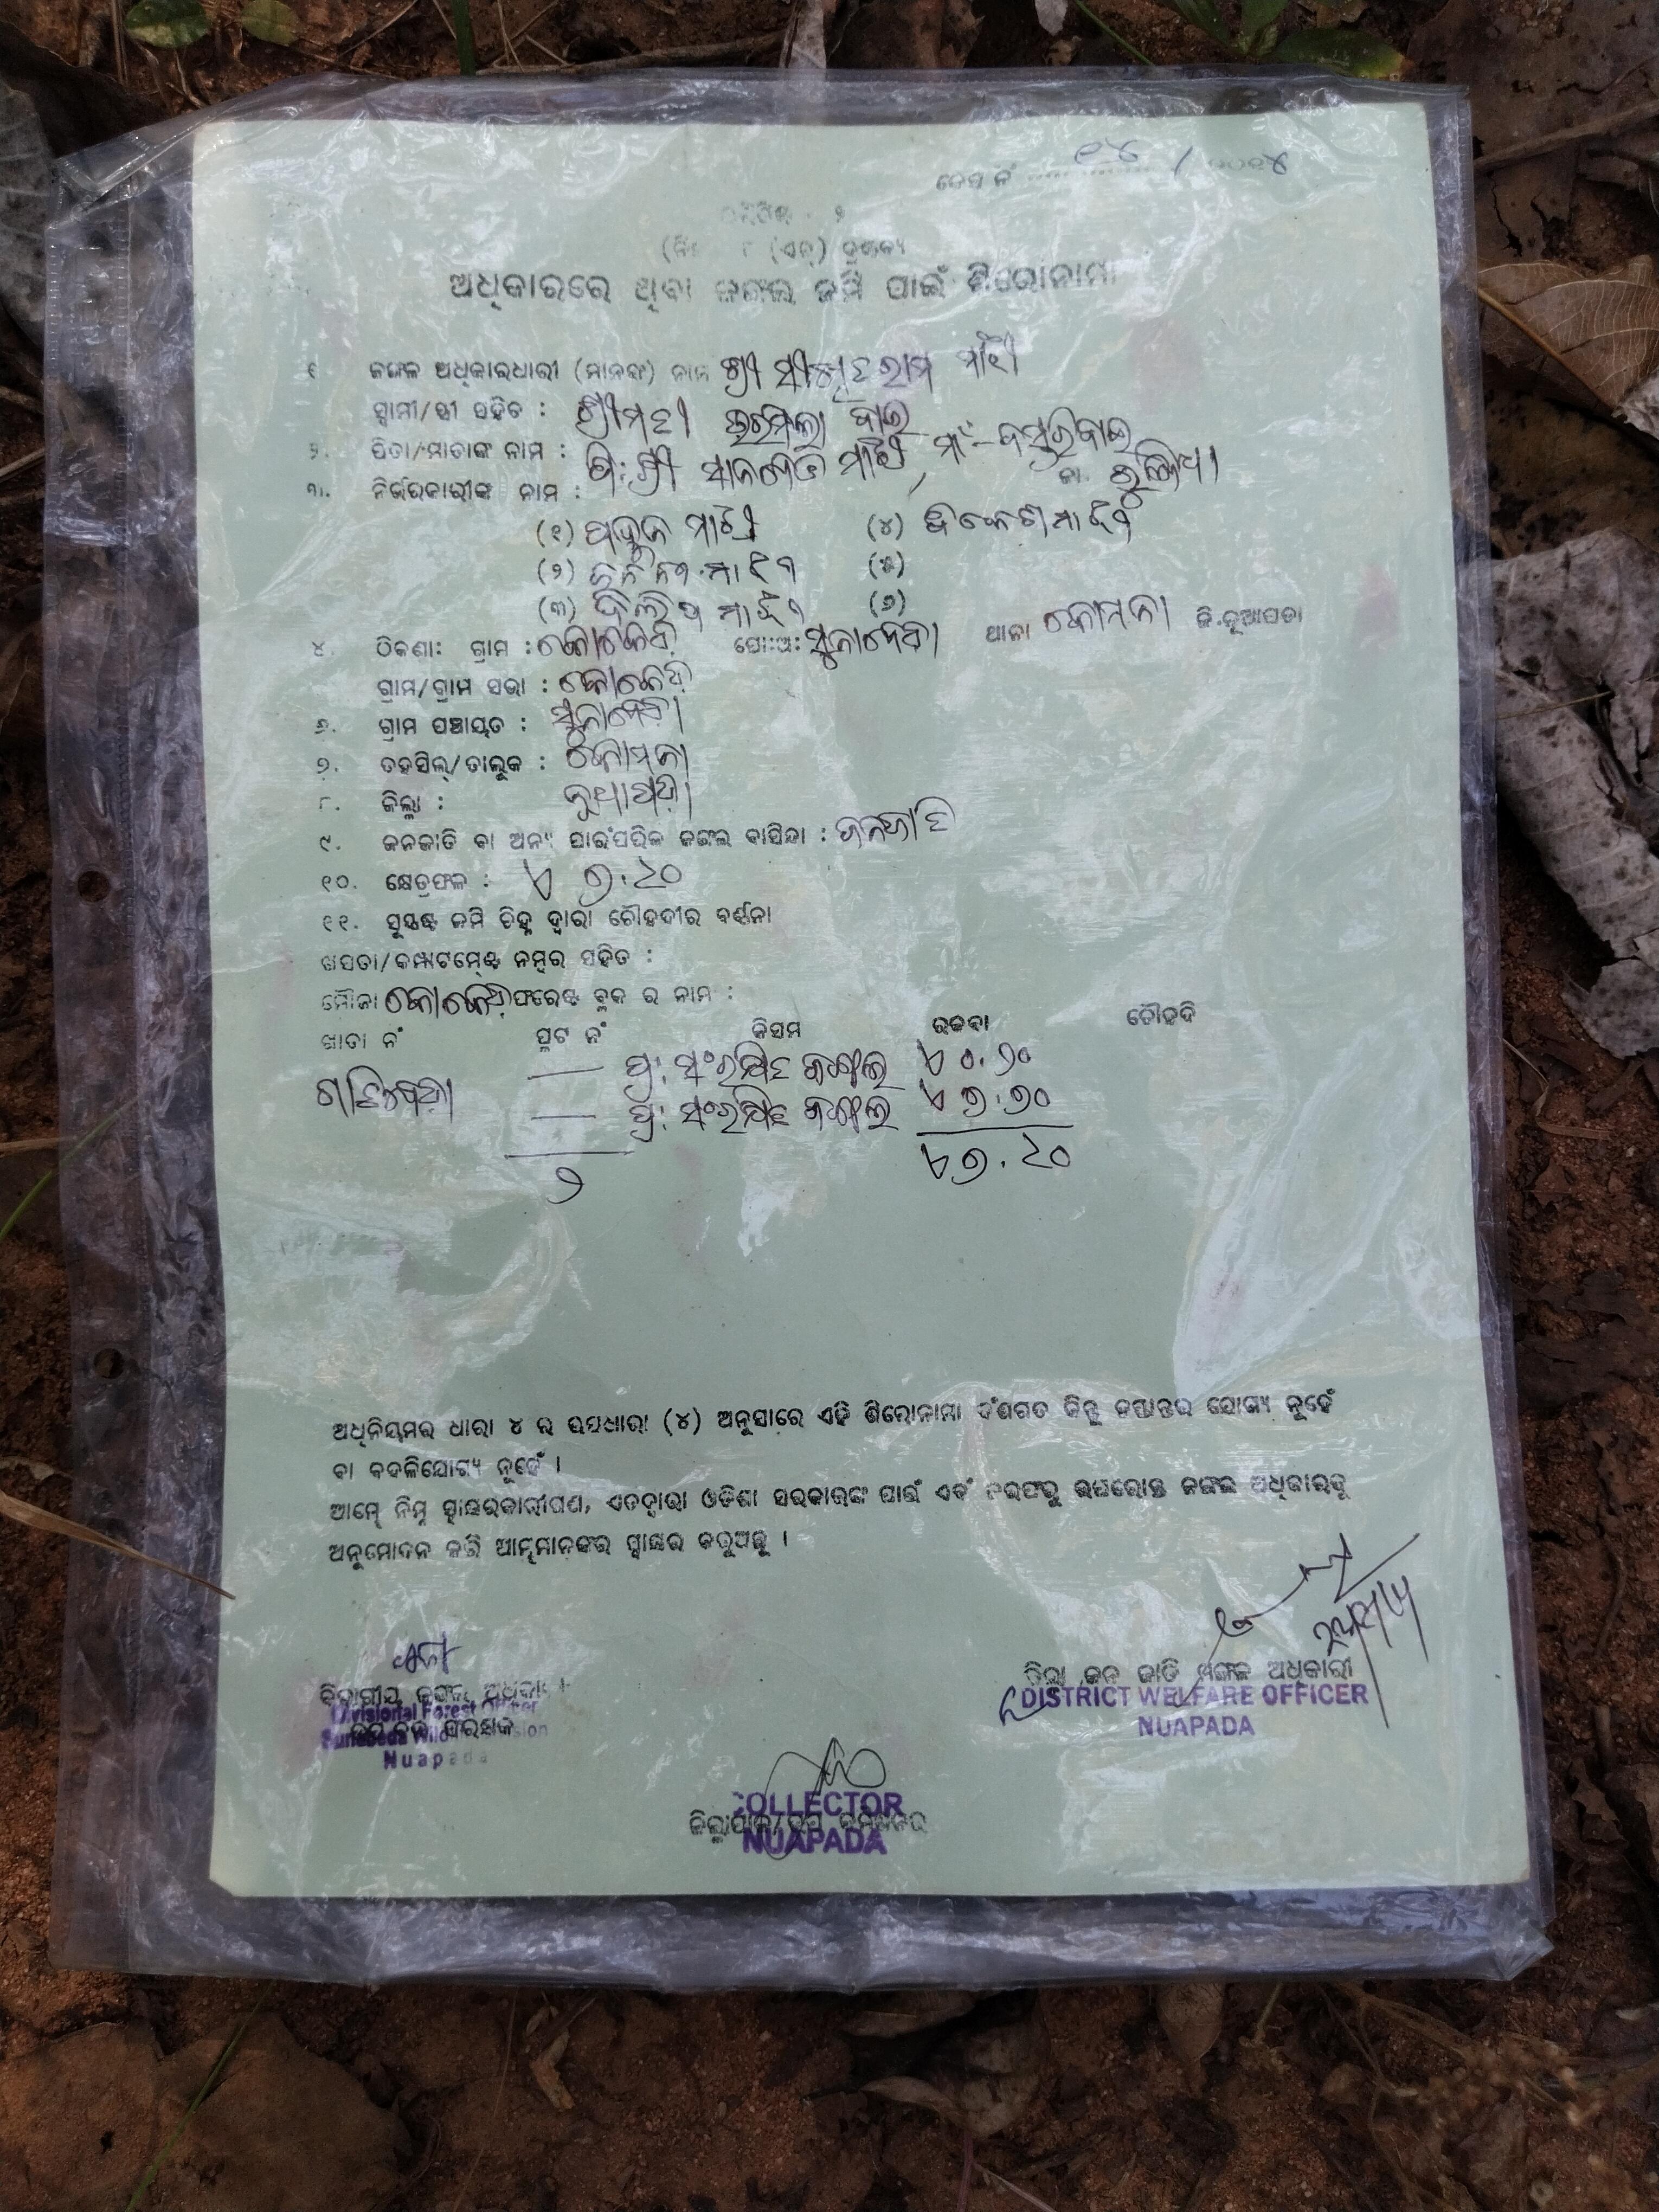 କେସ ନଂ ୧୪ / ୨୦୧୪
ପରିଶିଷ୍ଟ - ୨
(ଏଚ୍) ଦ୍ରଷ୍ଟବ୍ୟ
ଅଧିକାରରେ ଥିବା ଜଙ୍ଗଲ ଜମି ପାଇଁ ଶିରୋନାମା
୧ ଜଙ୍ଗଲ ଅଧିକାରଧାରୀ (ମାନଙ୍କ) ନାମ ଶ୍ରୀ ରାମ ମାଝୀ
ସ୍ୱାମୀ/ସ୍ତ୍ରୀ ସହିତ : ଶ୍ରୀମତୀ ଉରମିଲା ବାଇ
୨. ପିତା/ମାତାଙ୍କ ନାମ : ପି: ଶ୍ରୀ ମାଝୀ, ମାଁ-କସ୍ତୁରିବାଇ
୩. ନିର୍ଭରକାରୀଙ୍କ ନାମ : ଜା.
(୧) ମାଝୀ (୪) ମାଝୀ
(୨) ମାଝୀ (୫)
(୩) ଦିଲିପ ମାଝୀ (୬)
୪. ଠିକଣା: ଗ୍ରାମ : କୋକେଡ଼ି ପୋ:ଅ: ସୁନାବେଡ଼ା ଥାନା କୋମନା ଜି.ନୂଆପଡା
ଗ୍ରାମ/ଗ୍ରାମ ସଭା : କୋକେଡ଼ି
୬. ଗ୍ରାମ ପଞ୍ଚାୟତ : ସୁନାବେଡ଼ା
୭. ତହସିଲ୍/ତାଲୁକ : କୋମନା
୮. ଜିଲ୍ଲା : ନୁଆପଡ଼ା
୯. ଜନଜାତି ବା ଅନ୍ୟ ପାରଂପରିକ ଜଙ୍ଗଲ ବାସିନ୍ଦା : ଜନଜାତି
୧୦. କ୍ଷେତ୍ରଫଳ : ଏ ୭.୨୦
୧୧. ସୁସ୍ପଷ୍ଟ ଜମି ଚିହ୍ନ ଦ୍ୱାରା ଚୌହଦୀର ବର୍ଣ୍ଣନା
ଖସଡା/କମ୍ପାଟମେଣ୍ଟ ନମ୍ବର ସହିତ :
ମୌଜା କୋକେଡ଼ି ଫରେଷ୍ଟ ବ୍ଲକ ର ନାମ :
ଖାତା ନଂ ପ୍ଲଟ ନଂ କିସମ ରକବା ଚୌହଦି
— ପ୍ର: ସଂରକ୍ଷିତ ଜଙ୍ଗଲ ଏ ୦.୨୦
— ପ୍ର: ସଂରକ୍ଷିତ ଜଙ୍ଗଲ
୨ ଏ ୭.୨୦
ଅଧିନିୟମର ଧାରା ୪ ର ଉପଧାରା (୪) ଅନୁସାରେ ଏହି ଶିରୋନାମା ବଂଶଗତ କିନ୍ତୁ ହସ୍ତାନ୍ତର ଯୋଗ୍ୟ ନୁହେଁ
ବା ବଦଳିଯୋଗ୍ୟ ନୁହେଁ ।
ଆମ୍ଭେ ନିମ୍ନ ସ୍ୱାକ୍ଷରକାରୀଗଣ, ଏତଦ୍ୱାରା ଓଡ଼ିଶା ସରକାରଙ୍କ ପାଇଁ ଏବଂ ତରଫରୁ ଉପରୋକ୍ତ ଜଙ୍ଗଲ ଅଧିକାରକୁ
ଅନୁମୋଦନ କରି ଆମ୍ଭମାନଙ୍କର ସ୍ୱାକ୍ଷର କରୁଅଛୁ ।
ବିଭାଗୀୟ ଜଙ୍ଗଲ ଅଧିକାରୀ
Divisional Forest Officer
Sunabeda Wildlife Division
Nuapada
ଜିଲ୍ଲା ଜନ ଜାତି ମଙ୍ଗଳ ଅଧିକାରୀ
DISTRICT WELFARE OFFICER
NUAPADA
COLLECTOR
ଜିଲ୍ଲାପାଳ/
NUAPADA